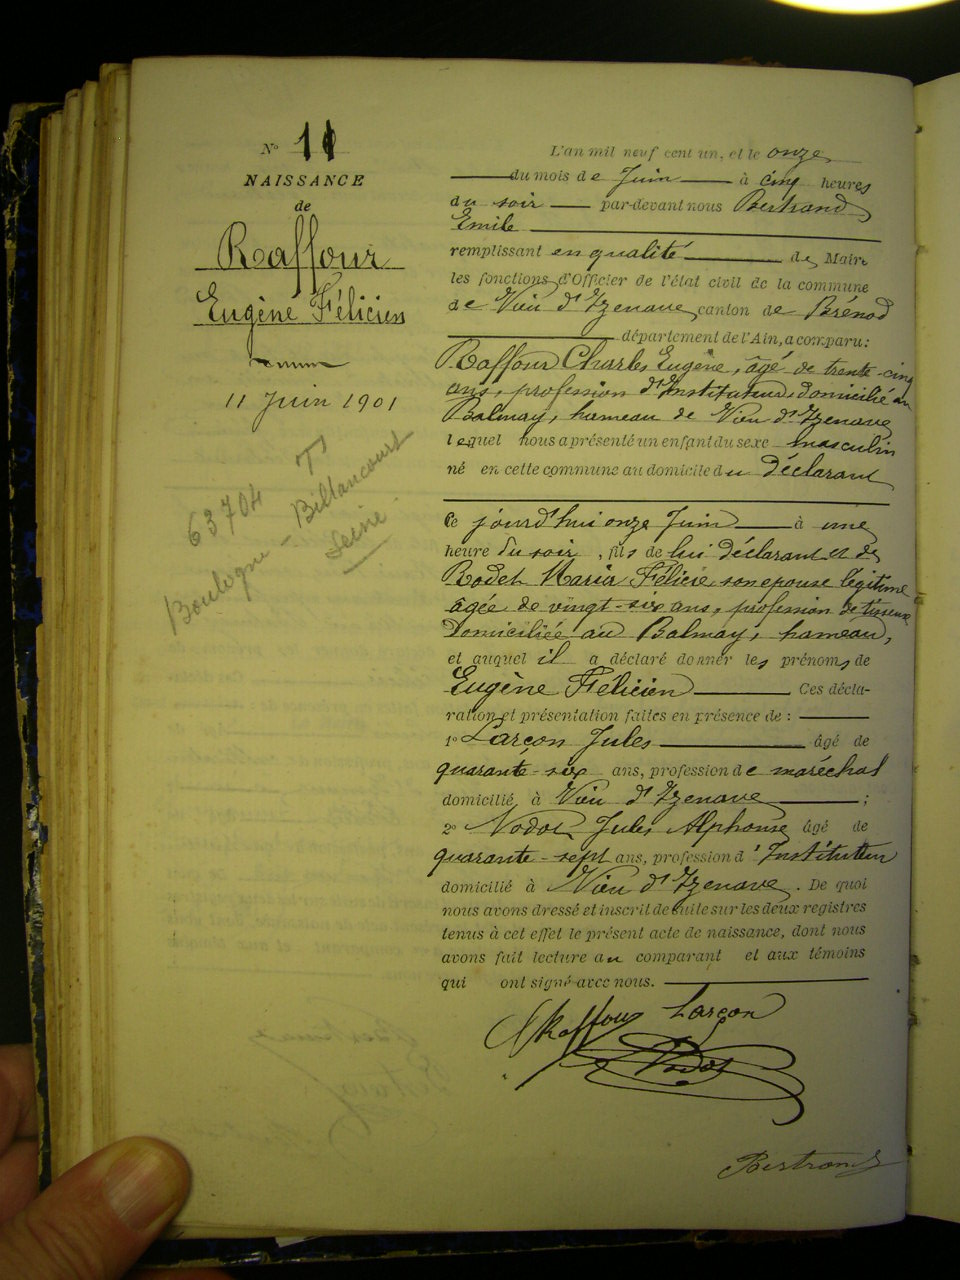 N° 11
NAISSANCE
de
Raffour
Eugène Félicien
11 Juin 1901
63704 T
Boulogne - Billancourt
Seine
L'an mil neuf cent un, et le onze
du mois de Juin à cinq heures
du soir par-devant nous Bertrand
Emile
remplissant en qualité de Maire
les fonctions d'Officier de l'état civil de la commune
de Vieu d'Izenave canton de Brénod
département de l'Ain, a comparu:
Raffour Charles Eugène, âgé de trente-cinq
ans, profession d'Instituteur, domicilié au
Balmay, hameau de Vieu d'Izenave
lequel nous a présenté un enfant du sexe masculin
né en cette commune au domicile du déclarant
Ce jourd'hui onze Juin à une
heure du soir, fils de lui déclarant et de
Bodet Maria Félicie, son épouse légitime
âgée de vingt-six ans, profession de
domiciliée au Balmay, hameau,
et auquel il a déclaré donner les prénoms de
Eugène Félicien Ces décla-
ration et présentation faites en présence de :
1° Larçon Jules âgé de
quarante-six ans, profession de maréchal
domicilié à Vieu d'Izenave ;
2° Jules Alphonse âgé de
quarante-sept ans, profession d'Instituteur
domicilié à Vieu d'Izenave. De quoi
nous avons dressé et inscrit de suite sur les deux registres
tenus à cet effet le présent acte de naissance, dont nous
avons fait lecture au comparant et aux témoins
qui ont signé avec nous.
Raffour Larçon
Bertrand